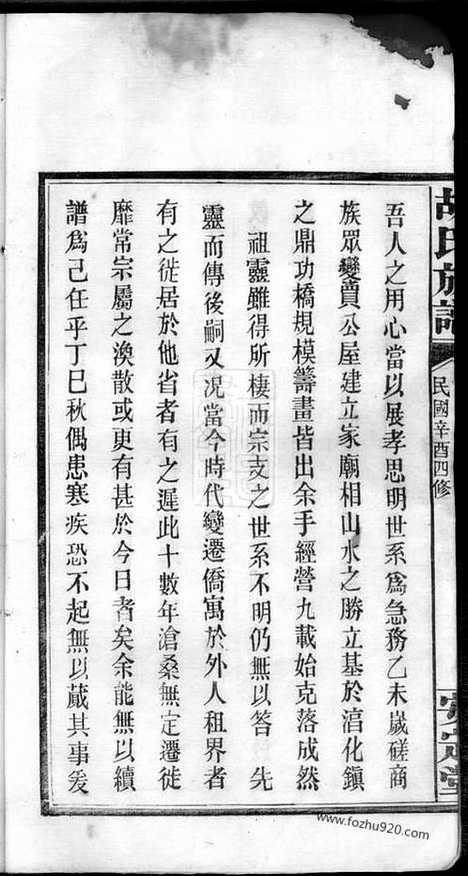 胡氏族譜
民國辛酉四修
安定堂
吾人之用心當以展孝思明世系爲急務乙未歲磋商
族眾變賣公屋建立家廟相山水之勝立基於湻化鎮
之鼎功橋規模籌畫皆出余手經營九載始克落成然
祖靈雖得所棲而宗支之世系不明仍無以答 先
靈而傳後嗣又況當今時代變遷僑寓於外人租界者
有之徙居於他省者有之遲此十數年滄桑無定遷徙
靡常宗屬之渙散或更有甚於今日者矣余能無以續
譜爲己任乎丁巳秋偶患寒疾恐不起無以蕆其事爰
www.fozhu920.com